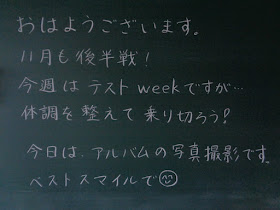 おはようございます。
11月も後半戦！
今週は テスト weekですが…
体調を整えて乗り切ろう！
今日は、アルバムの写真撮影です。
ベストスマイルで☺